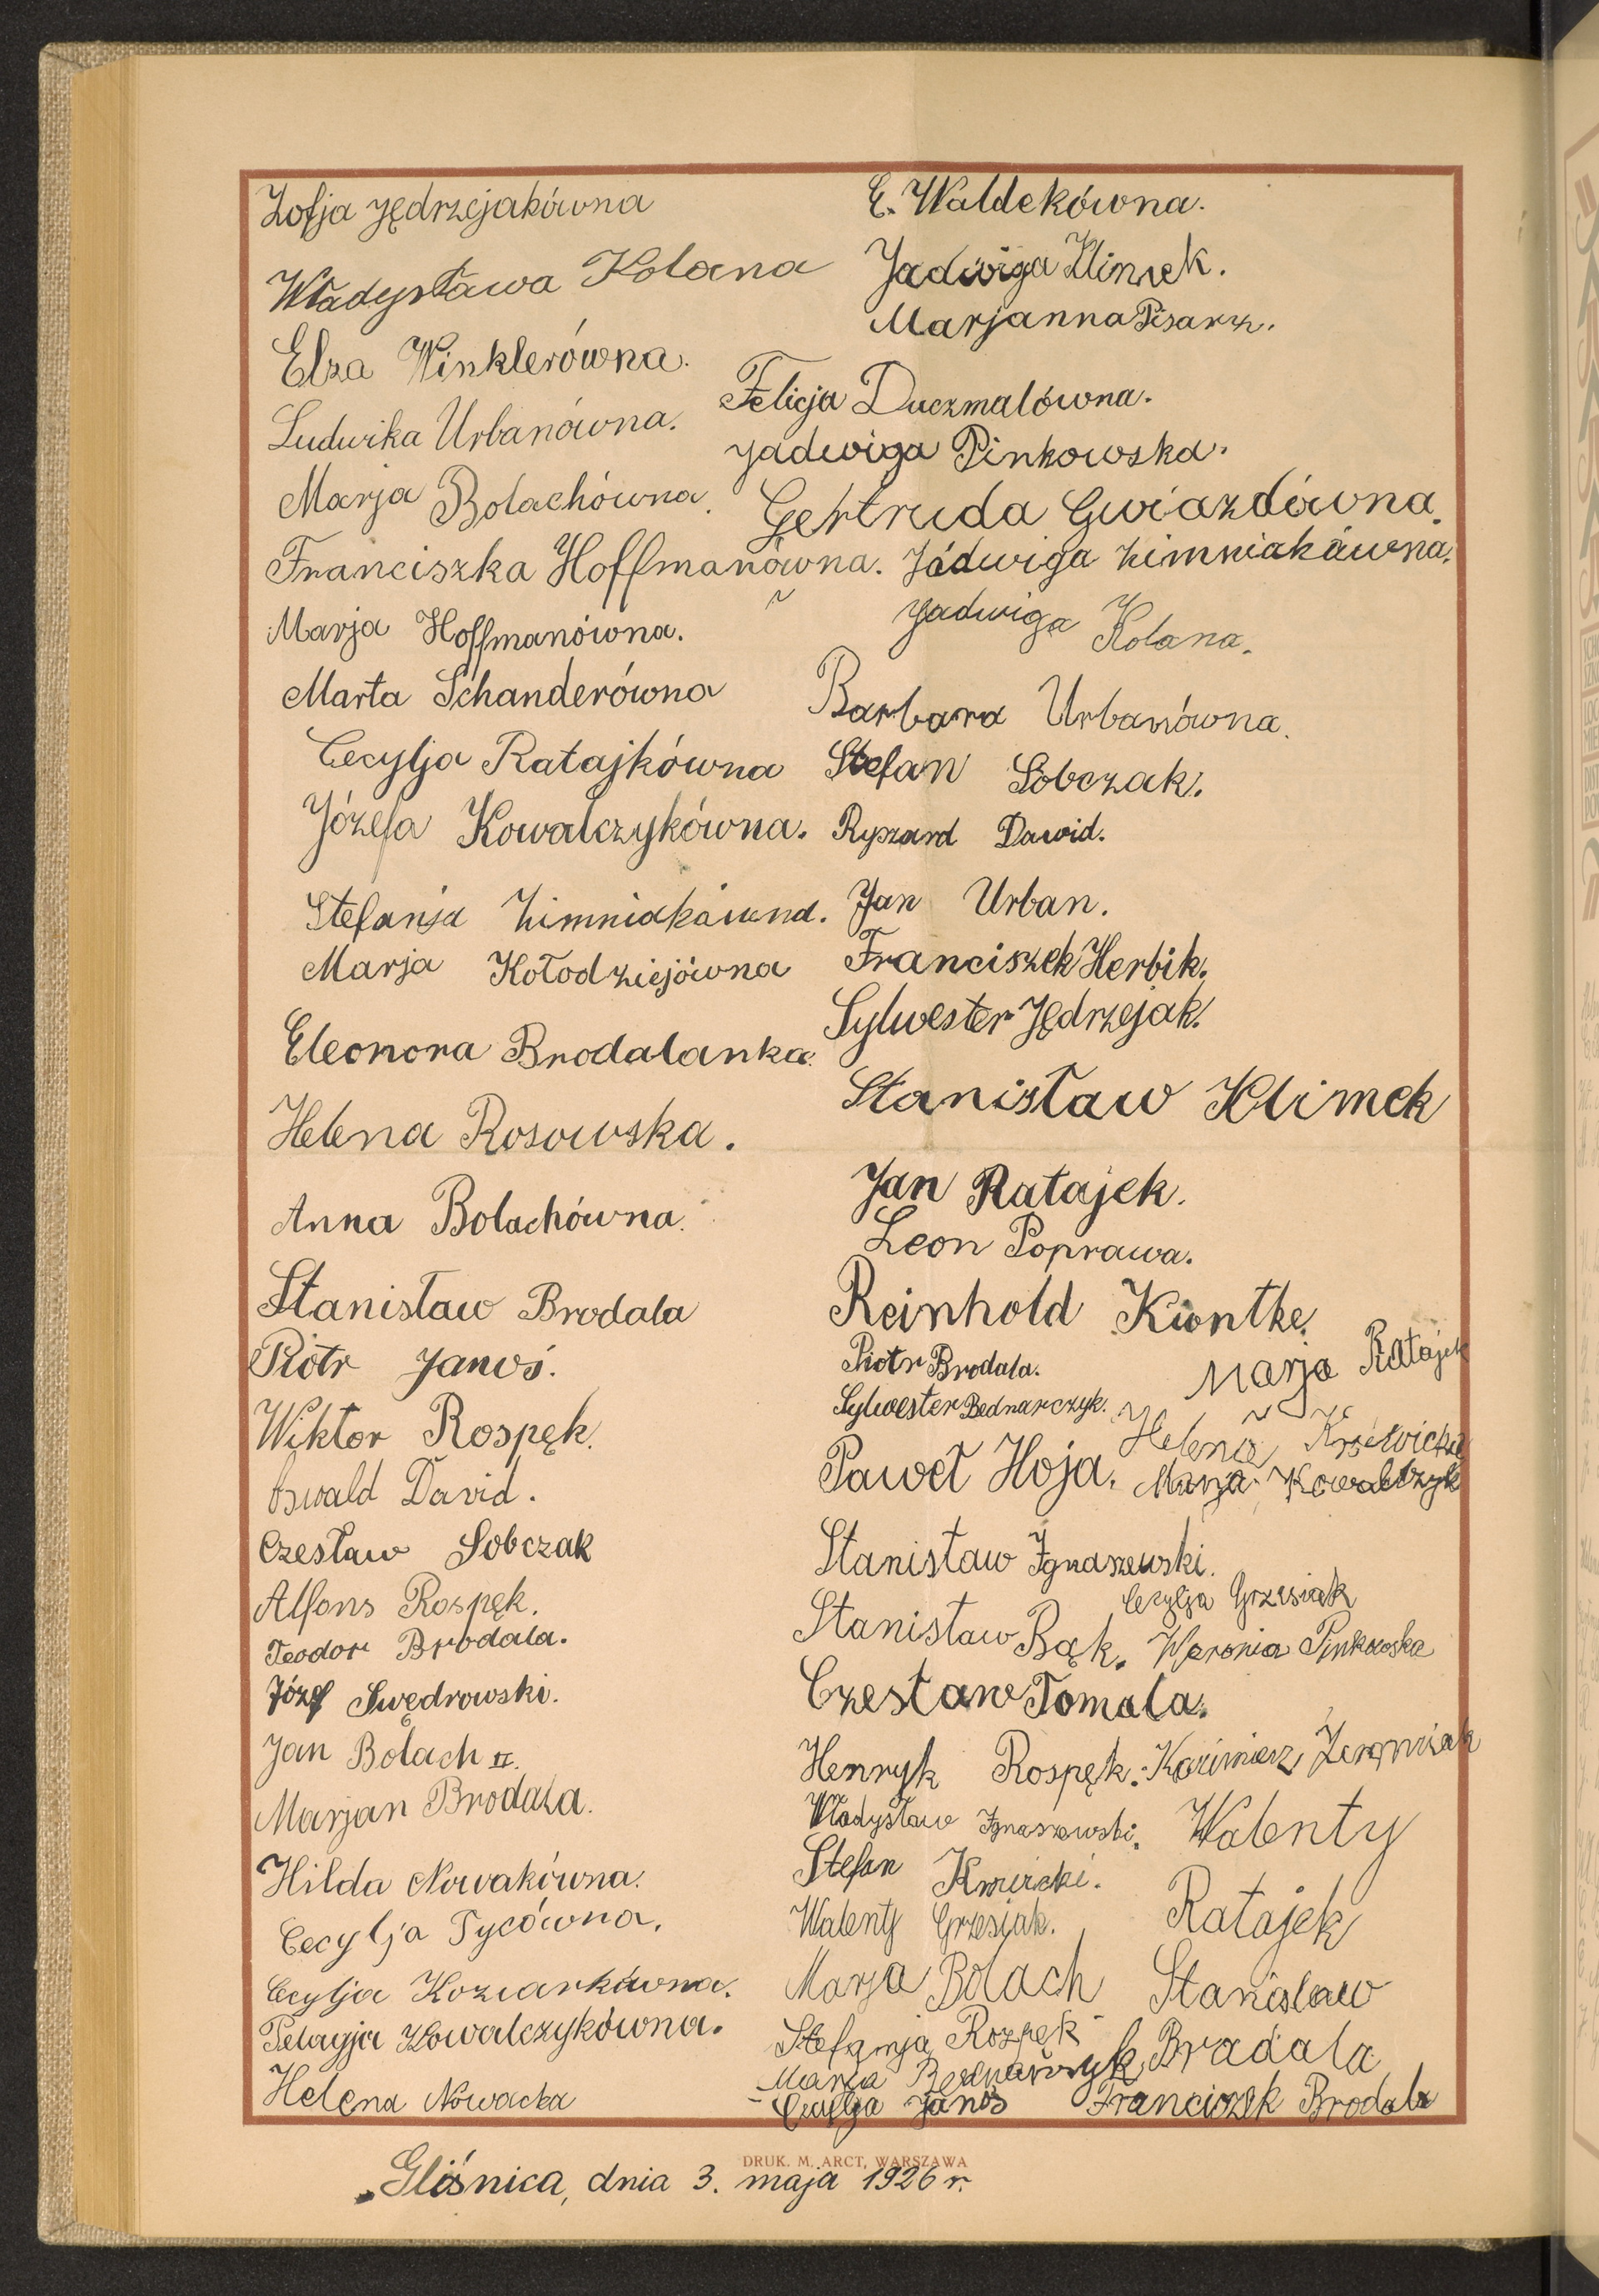 Zofja Jędrzejakówna
Władysława Kolana
Elza Winklerówna.
Ludwika Urbanówna.
Marja Bolachówna.
Franciszka Hoffmanówna.
Marja Hoffmanówna.
Marta Schanderówna
Cecylja Ratajkówna
Józefa Kowalczykówna.
Stefanja Zimniakówna.
Marja Kołodziejówna
Eleonora Brodalanka.
Helena Rosowska.
Anna Bolachówna.
Stanisław Brodala
Piotr Janoś.
Wiktor Rospęk.
Oswald David.
Czesław Sobczak
Alfons Rospęk.
Teodor Brodala.
Józef Swędrowski.
Jan Bolach II.
Marjan Brodala.
Hilda Nowakówna.
Cecylja Tycówna.
Cecylja Koziarkówna.
Pelagja Kowalczykówna.
Helena Nowacka
E. Waldekówna.
Jadwiga Klimek.
Marjanna Pisarz.
Felicja Duczmalówna.
Jadwiga Pinkowska.
Gertruda Gwiazdówna.
Jadwiga Zimniakówna.
Jadwiga Kolana.
Barbara Urbanówna.
Stefan Sobczak.
Ryszard Dawid.
Jan Urban.
Franciszek Herbik.
Sylwester Jędrzejak.
Stanisław Klimek
Jan Ratajek.
Leon Poprawa.
Reinhold Kiontke.
Piotr Brodala.
Marja Ratajek
Sylwester Bednarczyk.
Helena
Paweł Hoja.
Marja Kowalczyk
Stanisław Ignaszewski.
Cecylja Grzesiak
Stanisław Bąk.
Weronia Pinkowska
Czesław Tomala.
Henryk Rospęk.
Kazimierz
Władysław Ignaszewski.
Walenty
Stefan Kmiecki.
Walenty Grzesiak.
Ratajek
Marja Bolach
Stanislaw
Stefanja Rozpęk
Bradala
Marja Bednarczyk
Cecylja Janoś
Franciszek Brodala
Gliśnica, dnia 3. maja 1926 r.
DRUK. M. ARCT, WARSZAWA